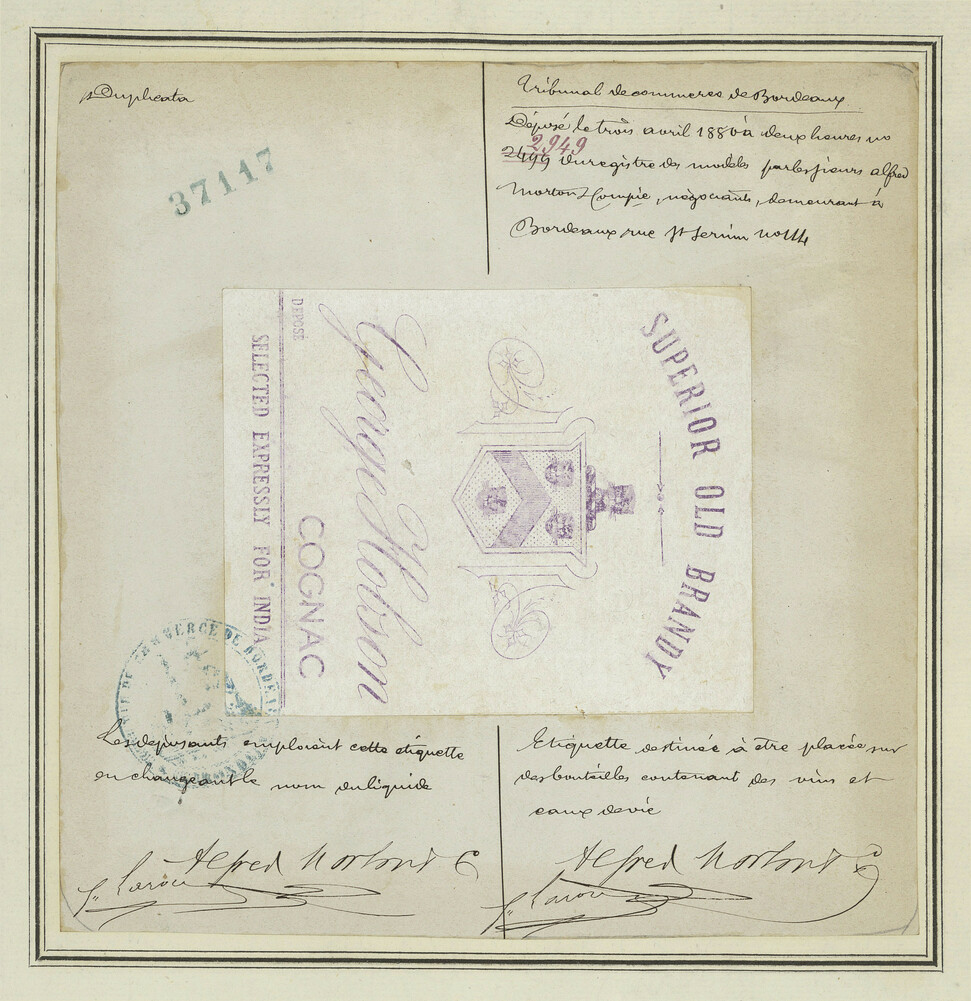 pr Duplicata
37117
Tribunal de commerce de Bordeaux
Déposé le trois avril 1880 à deux heures no
2949
2499 du registre des modèles par les sieurs alfred
Morton & Compie, négociants, demeurant à
Bordeaux rue St Serin no 114
SUPERIOR OLD BRANDY
George Hobson
COGNAC
DEPOSÉ
SELECTED EXPRESSLY FOR INDIA
COMMERCE DE BORDE
Les déposants emploient cette étiquette
en changeant le nom du liquide
Alfred Morton & Co
Etiquette destinée à être placée sur
des bouteilles contenant des vins et
eaux de vie
Alfred Morton & Co